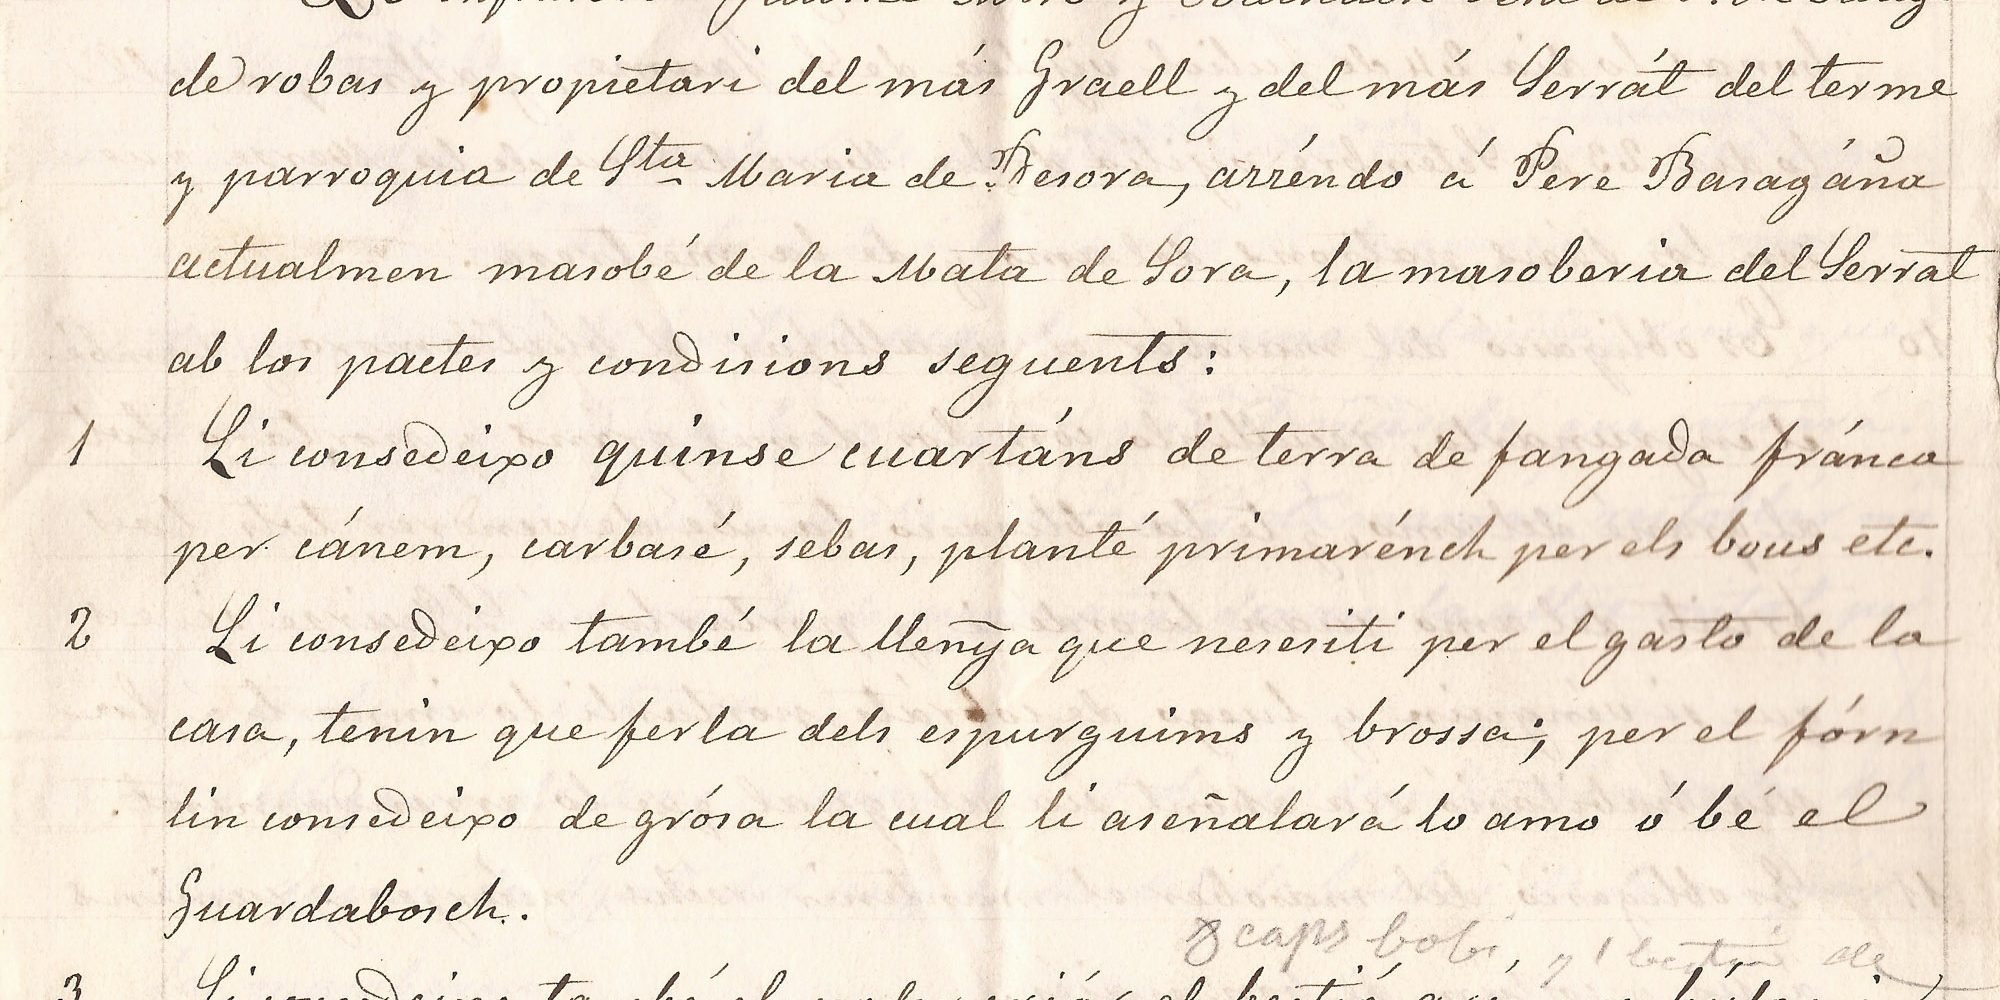 de robas y propietari del más Graell y del más Serrát del terme
y parroquia de Sta Maria de Besora, arréndo á Pere Basagáña
actualmen masobé de la Mata de Sora, la masoberia del Serrat
ab los pactes y condisions seguents:
1 Li consedeixo quinse cuartáns de terra de fangada fránca
per cánem, carbasé, sebas, planté primarénch per els bous etc.
2 Li consedeixo també la lleñya que nesesiti per el gasto de la
casa, tenin que ferla dels espurguims y brossa; per el fórn
lin consedeixo de grósa la cual li aseñalará lo amo ó bé el
Guardabosch.
8 caps bobi, y 1 de
3 Li